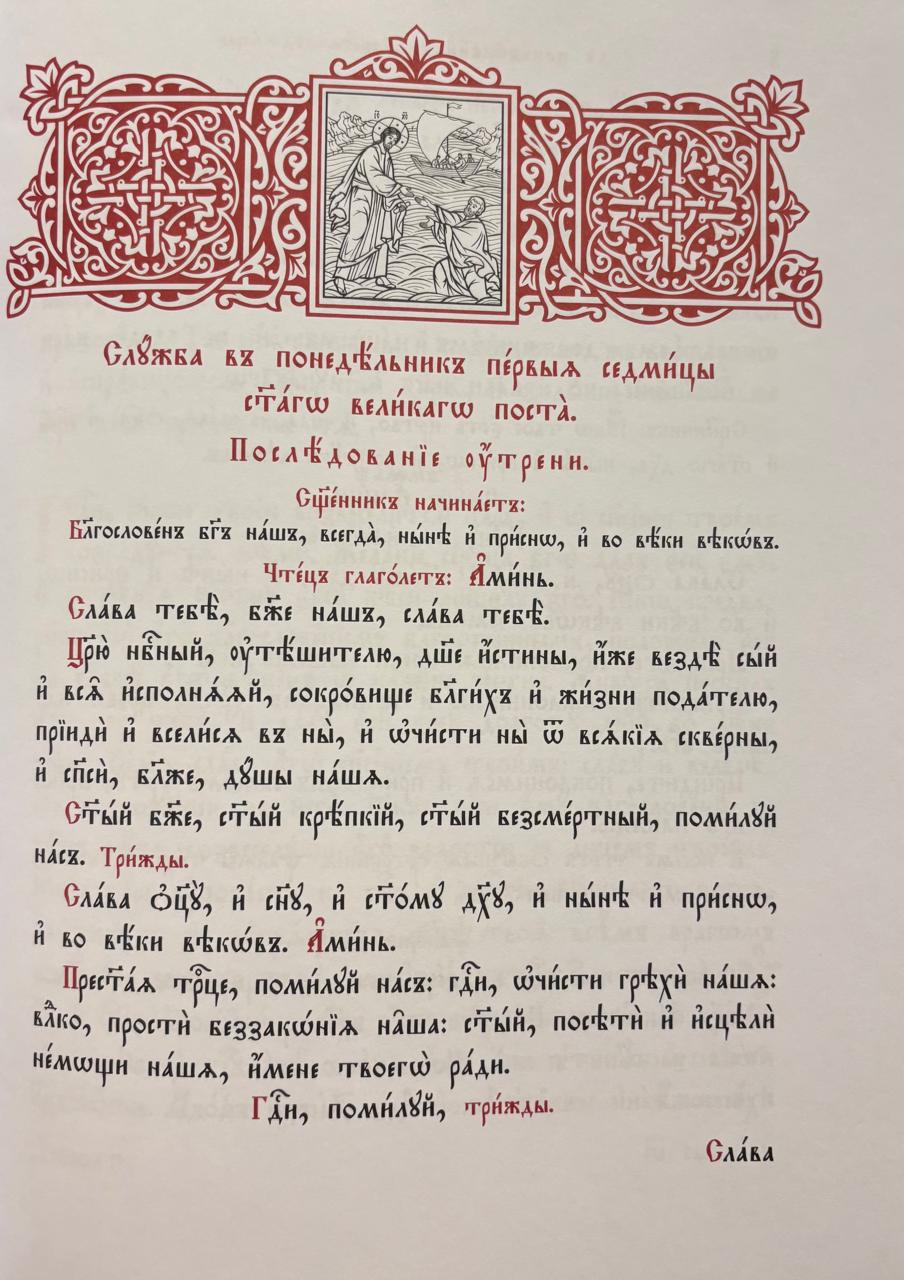 Слꙋ́жба въ понедѣ́льникъ пе́рвыѧ седми́цы
ст҃а́гѡ вели́кагѡ поста̀.
Послѣ́дованїе ᲂу҆́трени.
Сщ҃е́нникъ начина́етъ:
Бл҃гослове́нъ бг҃ъ на́шъ, всегда̀, ны́нѣ и҆ при́снѡ, и҆ во вѣ́ки вѣкѡ́въ.
Чте́цъ глаго́летъ: А҆ми́нь.
Сла́ва тебѣ̀, бж҃е на́шъ, сла́ва тебѣ̀.
Цр҃ю̀ нбⷭ҇ный, ᲂу҆тѣ́шителю, дш҃е и҆́стины, и҆́же вездѣ̀ сы́й
и҆ всѧ̑ и҆сполнѧ́ѧй, сокро́вище бл҃ги́хъ и҆ жи́зни пода́телю,
прїидѝ и҆ всели́сѧ въ ны̀, и҆ ѡ҆чи́сти ны̀ ѿ всѧ́кїѧ скве́рны,
и҆ сп҃сѝ, бл҃же, дꙋ́шы на́шѧ.
Ст҃ы́й бж҃е, ст҃ы́й крѣ́пкїй, ст҃ы́й безсме́ртный, поми́лꙋй
на́съ. Три́жды.
Сла́ва ѻ҆ц҃ꙋ̀, и҆ сн҃ꙋ, и҆ ст҃о́мꙋ дх҃ꙋ, и҆ ны́нѣ и҆ при́снѡ,
и҆ во вѣ́ки вѣкѡ́въ. А҆ми́нь.
Прест҃а́ѧ трⷪ҇це, поми́лꙋй на́съ: гдⷭ҇и, ѡ҆чи́сти грѣхѝ на́шѧ:
влⷣко, простѝ беззакѡ́нїѧ на̑ша: ст҃ы́й, посѣтѝ и҆ и҆сцѣлѝ
не́мѡщи на́шѧ, и҆́мене твоегѡ̀ ра́ди.
Гдⷭ҇и, поми́лꙋй, три́жды.
Сла́ва